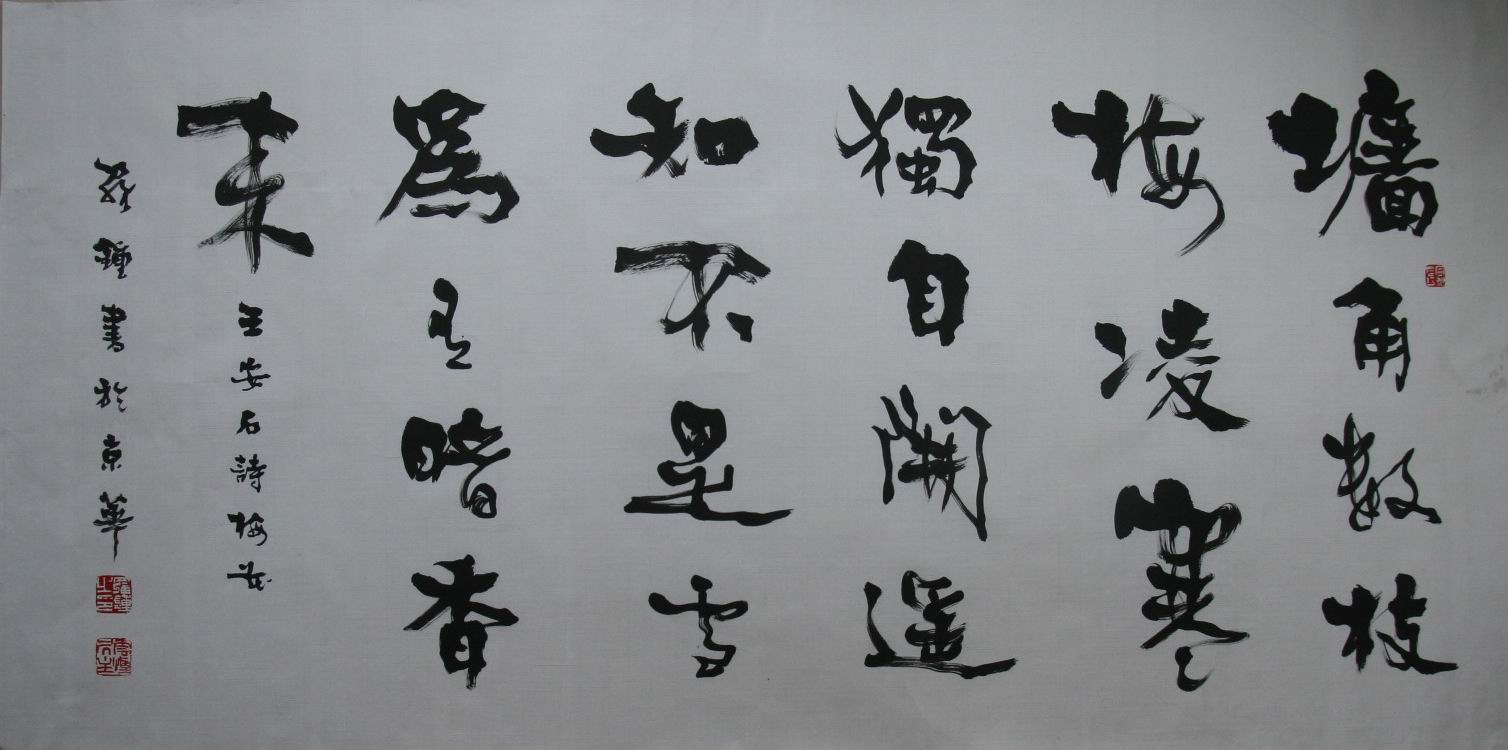 墙角数枝
梅凌寒
獨自開遥
知不是雪
爲有暗香
来 王安石詩梅花
鍾書於京華